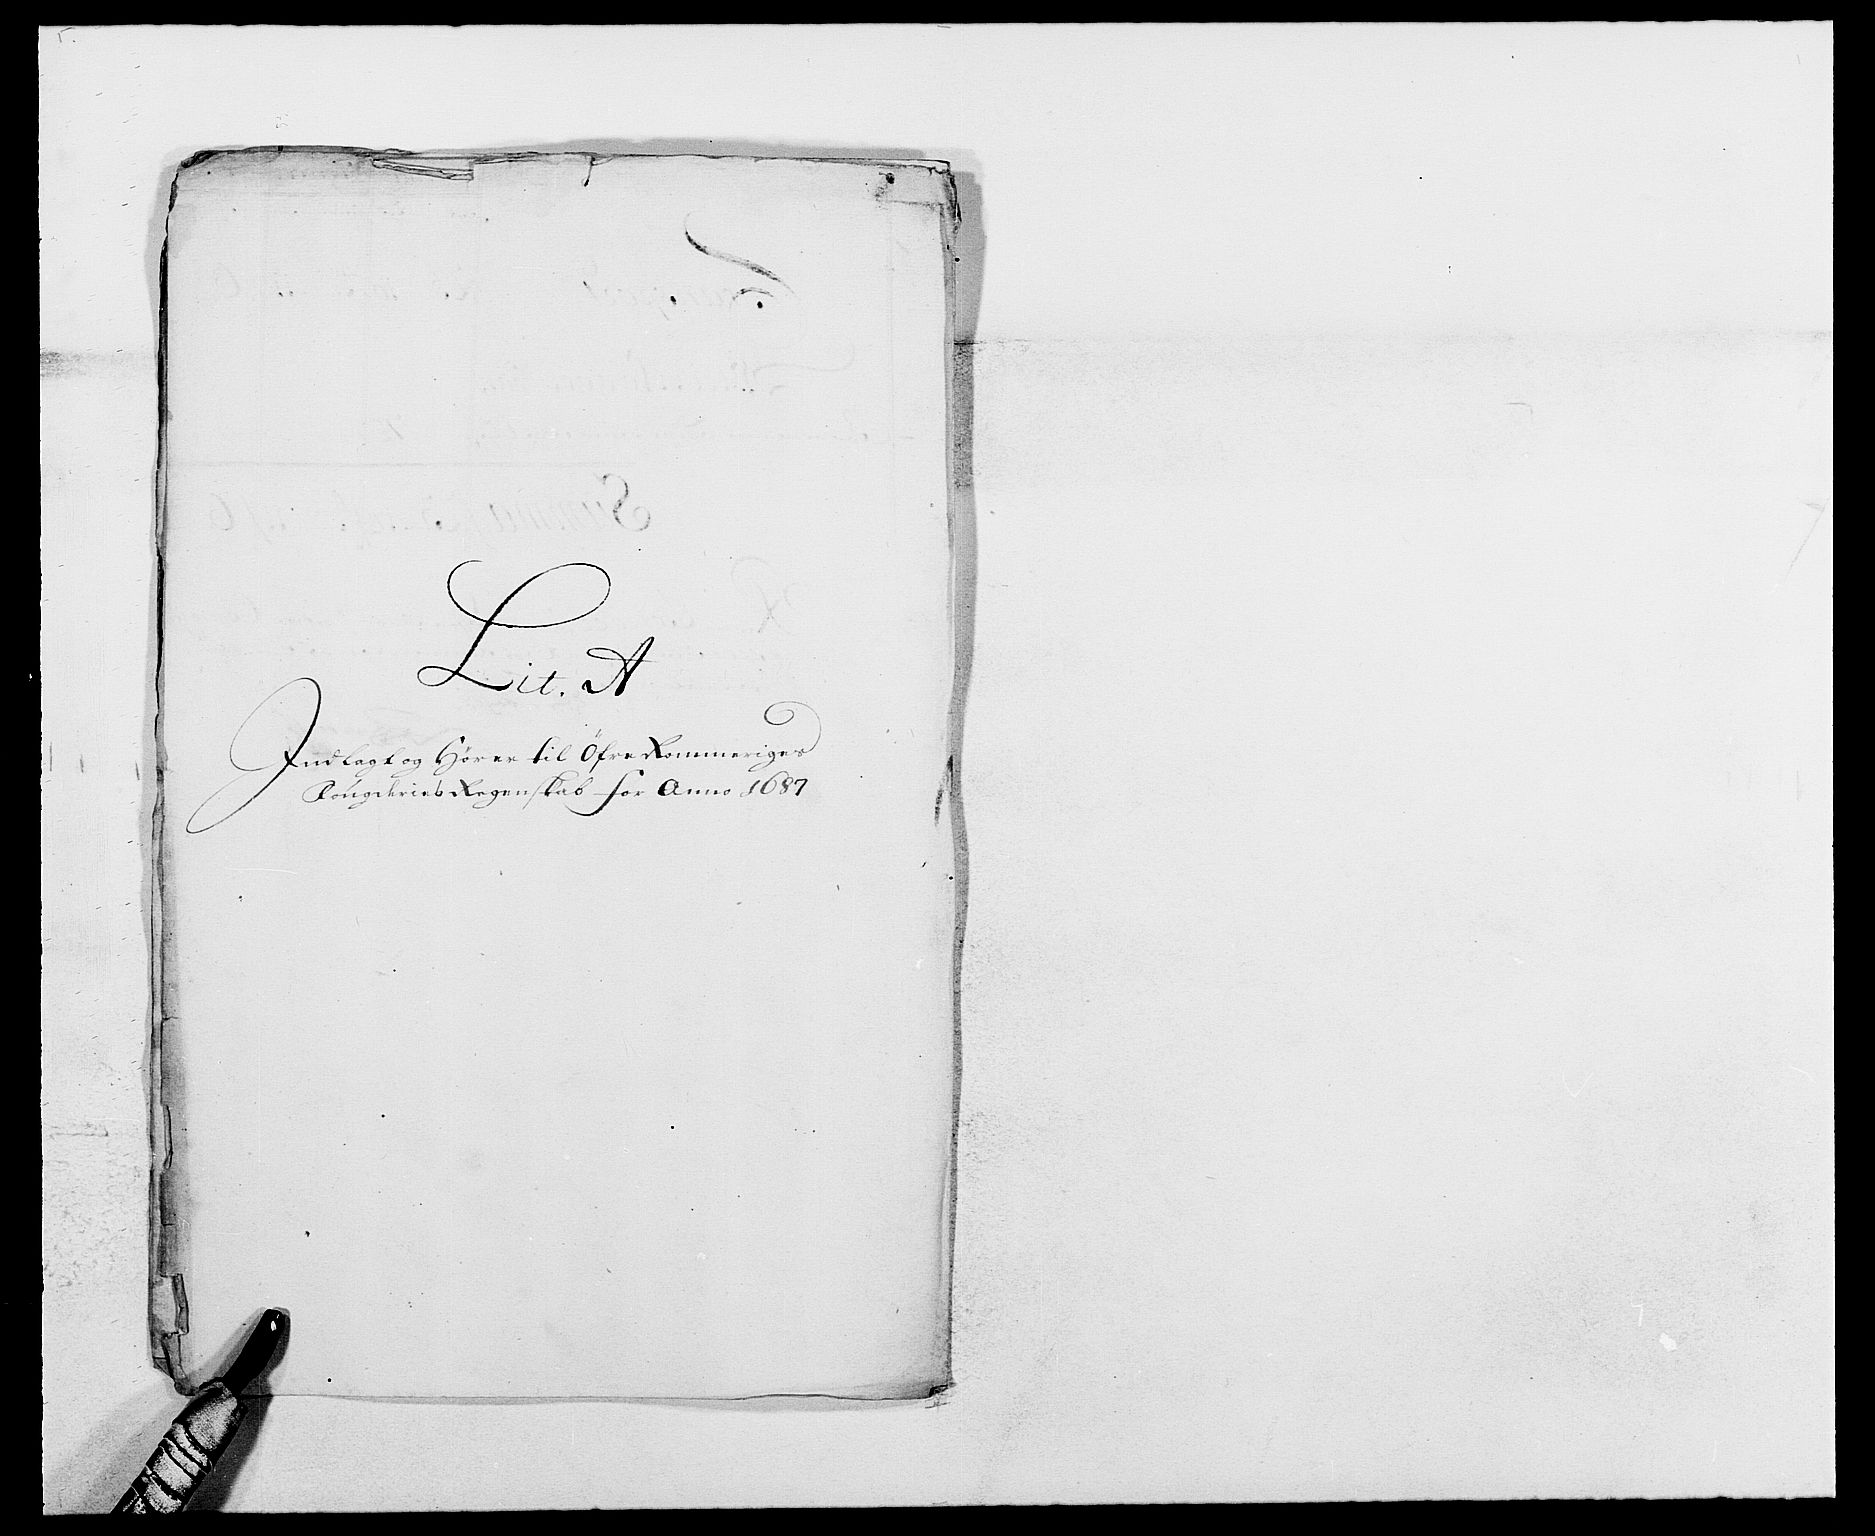 Lit. A
Indlagt og Hörer til Öfre Rommeriges
Fougderies Regenskab for Anno 1687